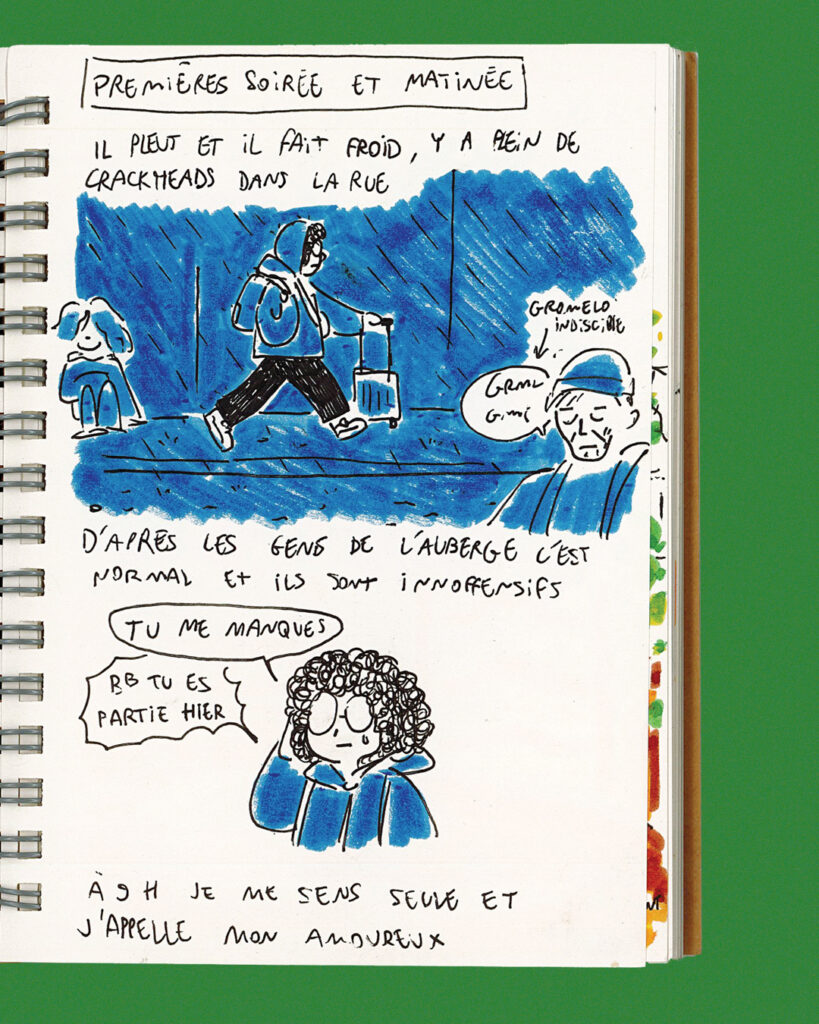 PREMIÈRES SOIRÉE ET MATINÉE
IL PLEUT ET IL FAIT FROID, Y A PLEIN DE
CRACKHEADS DANS LA RUE
GROMELO
INDISCIBLE
GRML
GIMI
D'APRÈS LES GENS DE L'AUBERGE C'EST
NORMAL ET ILS SONT INNOFFENSIFS
TU ME MANQUES
BB TU ES
PARTIE HIER
À 9H JE ME SENS SEULE ET
J'APPELLE MON AMOUREUX